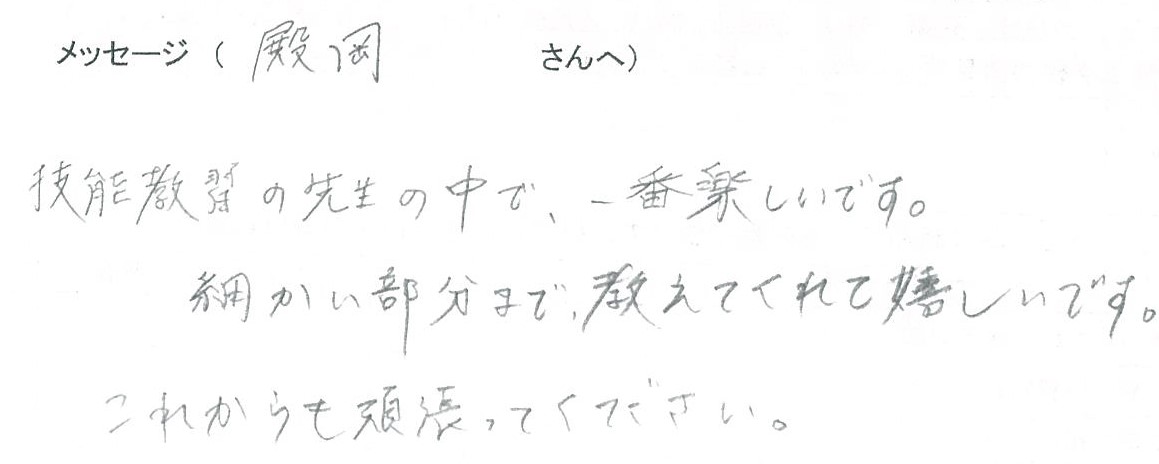 メッセージ（ 殿岡 さんへ）
技能教習の先生の中で、一番楽しいです。
細かい部分まで、教えてくれて嬉しいです。
これからも頑張ってください。